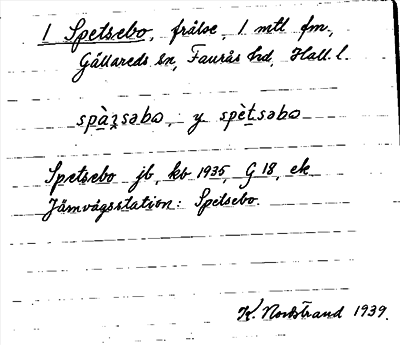 1 Spetsebo, frälse, 1 mtl fm.,
Gällareds sn, Faurås hd, Hall. l.
spètsəbo
Spetsebo jb, kb 1935, G 18, ek
Järnvägsstation: Spetsebo.
K. Nordstrand 1939.